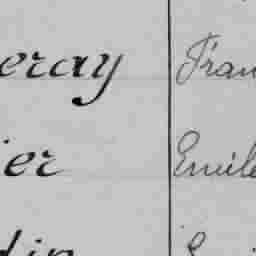 eray Fran
ier Emile
din